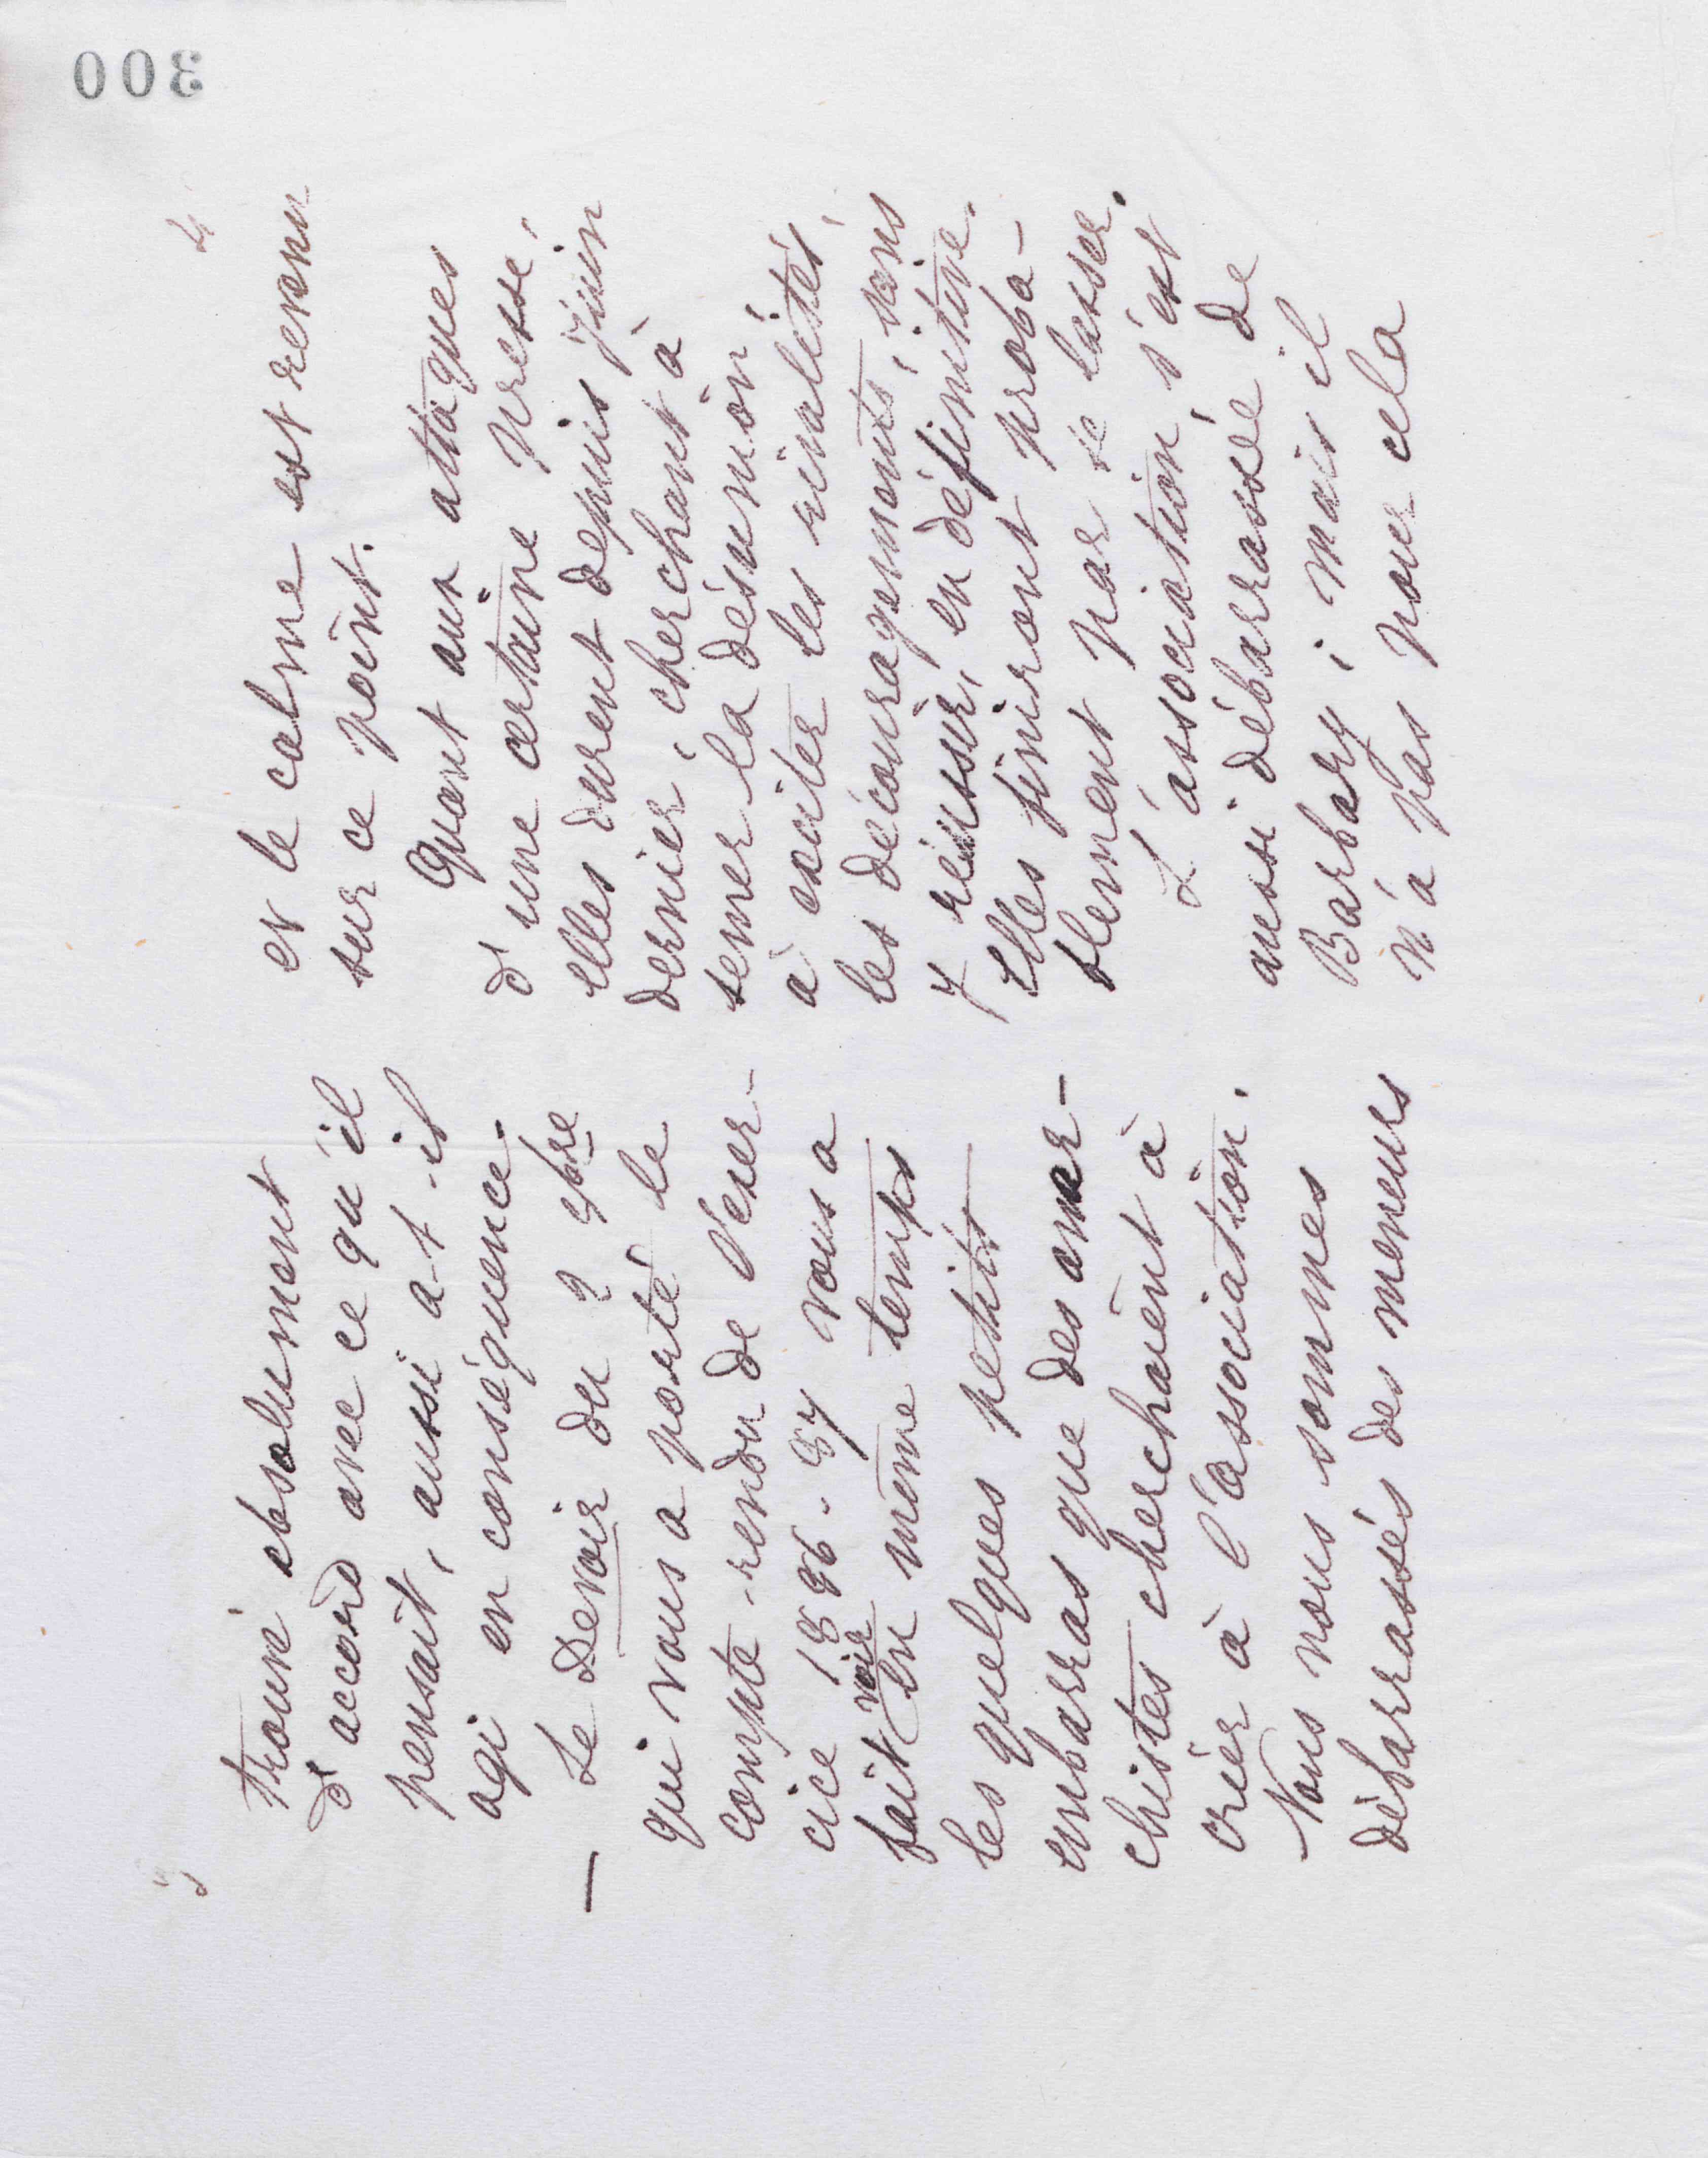 300
3
trouvé absolument
d'accord avec ce qu'il
pensait, aussi a-t-il
agi en conséquence.
— Le Devoir du 2 9bre
qui vous a porté le
compte-rendu de l'exer-
cice 1886-87 vous a
fait voir en même temps
les quelques petits
embarras que des anar-
chistes cherchaient à
créer à l'association.
Nous nous sommes
débarrassés des meneurs
4
et le calme est revenu
sur ce point.
Quant aux attaques
d'une certaine presse,
elles durent depuis Juin
dernier, cherchant à
semer la désunion,
à exciter les rivalités,
les découragements, sans
y réussir, en définitive.
Elles finiront proba-
blement par se lasser.
L'association s'est
aussi débarrassée de
Barbary ; mais il
n'a pas pour cela